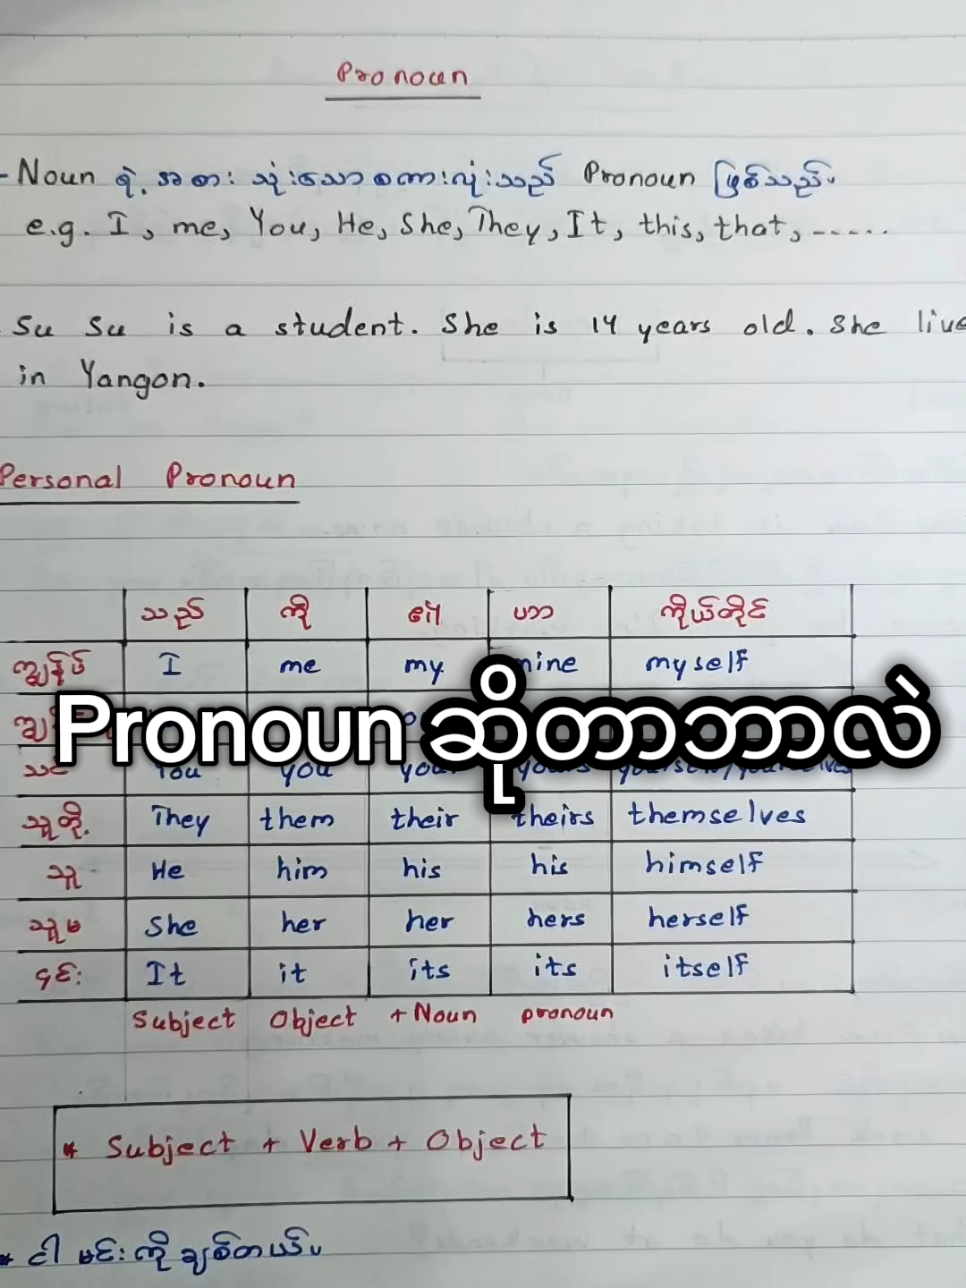 Pronoun
- Noun ရဲ့ အစား သုံးသော စကားလုံးသည် Pronoun ဖြစ်သည်။
e.g. I, me, You, He, She, They, It, this, that, -----
Su Su is a student. She is 14 years old. She live
in Yangon.
Personal Pronoun
သည် ကို ၏ ဟာ ကိုယ်တိုင်
ကျွန်ုပ် I me my mine myself
Pronoun ဆိုတာဘာလဲ
သင် You you your yours
သူတို့ They them their theirs themselves
သူ He him his his himself
သူမ She her her hers herself
၎င်း It it its its itself
Subject Object + Noun pronoun
* Subject + Verb + Object
* ငါ မင်းကို ချစ်တယ်။